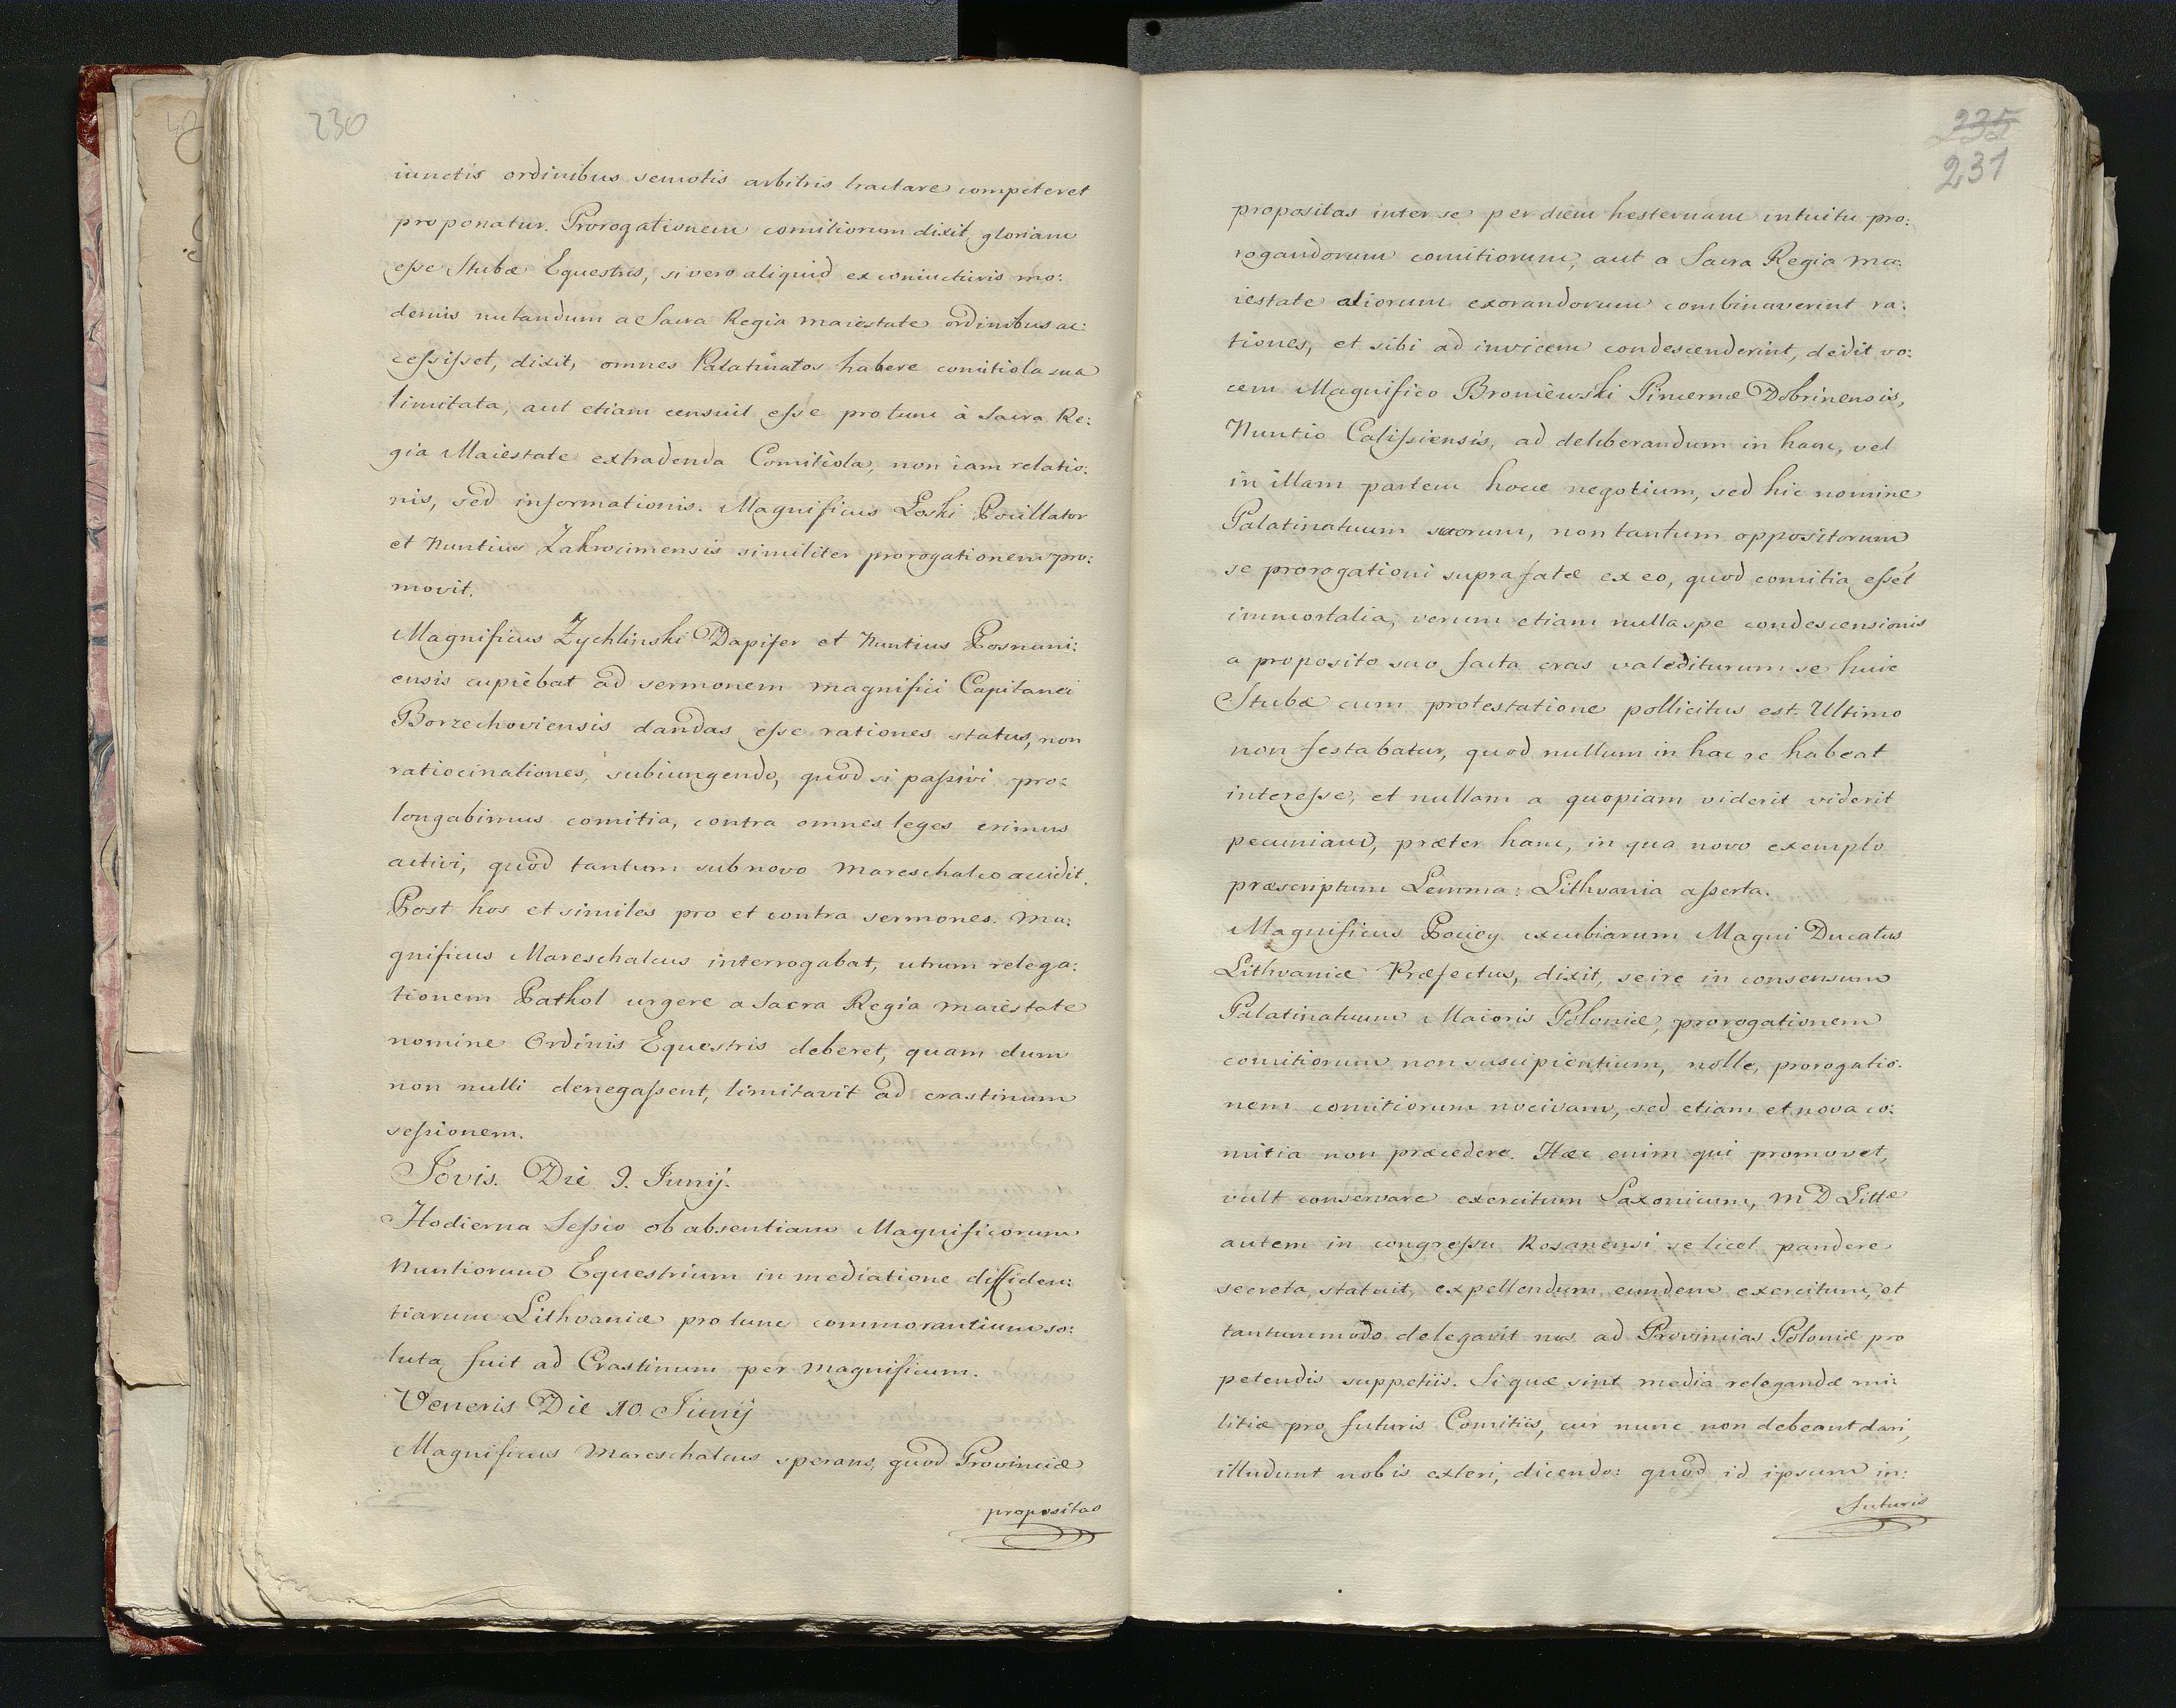 230
iunctis ordinibus semotis arbitris tractare competeret
proponatur. Prorogationem comitiorum dixit, gloriam
eſse Stubæ Equestris, si vero aliquid ex coniucturis mo:
dernis nutandum a Sacra Regia maiestate ordinibus ac:
ceſsiſset, dixit, omnes Palatinatos habere comitiola sua
limitata, aut etiam censuit eſse pro tunc à Sacra Re:
gia Maiestate extradenda Comitiola, non iam relatio:
nis, sed informationis. Magnificus Łoski Pocillator
et Nuntius Zakrocimensis similiter prorogationem pro:
movit.
Magnificus Zychlinski Dapifer et Nuntius Posnani:
ensis cupiebat ad sermonem magnifici Capitanei
Borzechoviensis dandas eſse rationes status, non
ratiocinationes, subiungendo, quod si paſsivi pro:
longabimus comitia, contra omnes leges erimus
activi, quod tantum sub novo Mareschalco accidit.
Post hos et similes pro et contra sermones. Ma:
gnificus Mareschalcus interrogabat, utrum relega:
tionem Pathol urgere a Sacra Regia maiestate
nomine Ordinis Equestris deberet, quam dum
non nulli denegaſsent, limitavit ad crastinum
seſsionem.
Jovis. Die 9. Junij.
Hodierna Seſsio ob absentiam Magnificorum
Nuntiorum Equestrium in mediatione diffiden:
tiarum Lithvaniæ pro tunc commorantium so:
luta fuit ad Crastinum per magnificum.
Veneris Die 10 Junij
Magnificus Mareschalcus sperans, quod Provinciæ
propositas
235
231
propositas inter se per diem hesternam intuitu pro:
rogandorum comitiorum, aut a Sacra Regia Ma:
iestate aliorum exorandorum combinaverint ra:
tiones, et sibi ad invicem condescenderint, dedit vo:
cem Magnifico Broniewski Pincernæ Dobrinensis,
Nuntio Caliſsiensis, ad deliberandum in hanc, vel
in illam partem hocce negotium, sed hic nomine
Palatinatuum suorum, non tantum oppositorum
se prorogationi suprafatæ ex eo, quod comitia eſsét
immortalia, verum etiam nulla spe condescensionis
a proposito suo facta cras valediturum se huic
Stubæ cum protestatione pollicitus est. Ultimo
non festabatur, quod nullum in hac re habeat
intereſse, et nullam a quopiam viderit viderit
pecuniam, præter hanc, in qua novo exemplo
præscriptum Lemma: Lithvania aſserta.
Magnificus Pociey excubiarum Magni Ducatus
Lithvaniæ Præfectus, dixit, se ire in consensum
Palatinatuum Maioris Poloniæ, prorogationem
comitiorum non suscipientium, nolle, prorogatio:
nem comitiorum nocivam, sed etiam et nova co:
mitia non præcedere. Hæc enim qui promovet,
vult conservare exercitum Saxonicum, M D Littæ
autem in congreſsu Rosanensi se licet pandere
secreta, statuit, expellendum eundem exercitum, et
tantummodo delegavit nos ad Provincias Poloniæ pro
petendis suppetiis. Si quæ sint media relegandæ mi:
litiæ pro futuris Comitiis, cur nunc non debeant dari,
illudunt nobis exteri, dicendo: quod id ipsum in:
futuris